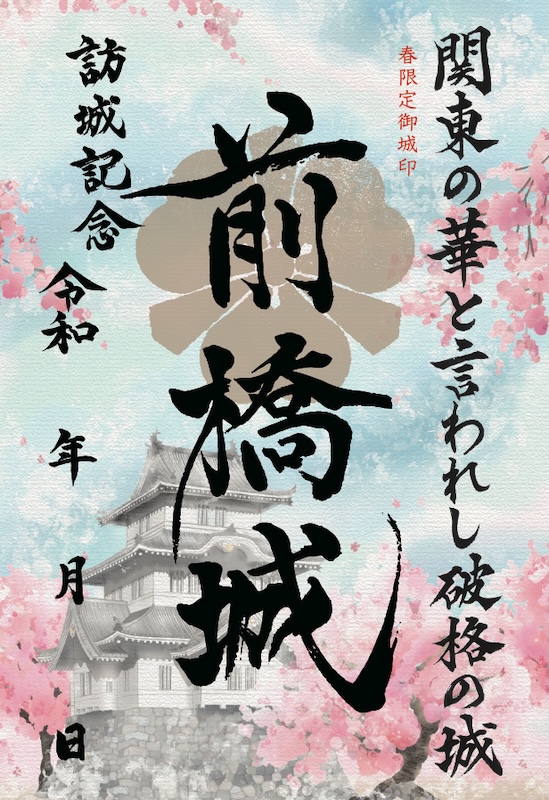 関東の華と言われし破格の城
春限定御城印
前橋城
訪城記念
令和 年 月 日